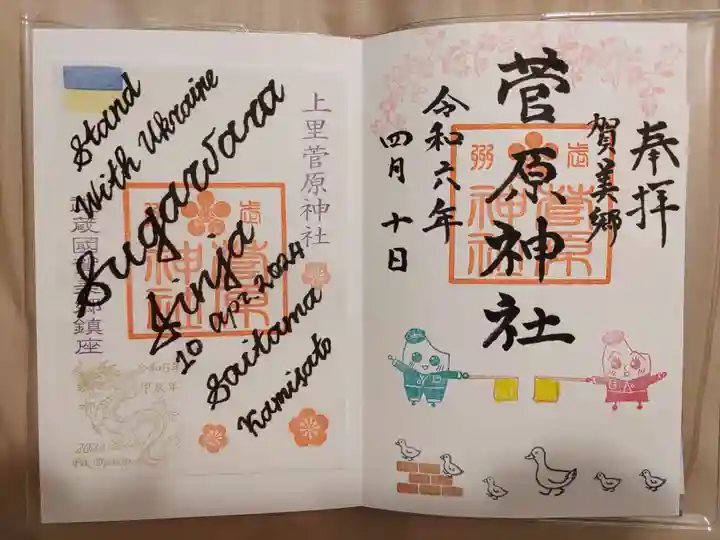 奉拝
賀美郷
菅原神社
令和六年
四月十日
上里菅原神社
Stand
With Ukraine
Sugawara
Jinja
10 apr. 2024
Saitama
Kamisato
鎮座
令和6年
甲辰年
菅原
神社